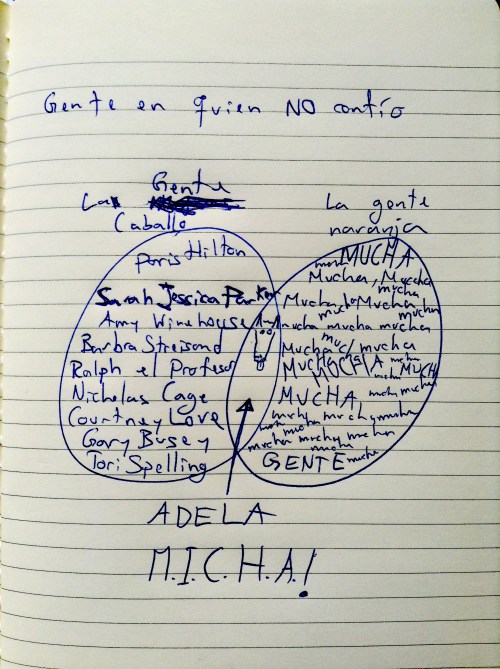 Gente en quien NO confío
La Gente
Caballo
Paris Hilton
Sarah Jessica Parker
Amy Winehouse
Barbra Streisand
Ralph el Profesor
Nicholas Cage
Courtney Love
Gary Busey
Tori Spelling
La gente
naranja
mucha MUCHA
Mucha, Mucha
mucha
Mucha Mucha
mucha mucha mucha
Mucha mucha
MUCHA MUCHA mucha MUCHA
MUCHA mucha mucha
mucha mucha mucha
mucha mucha
mucha mucha mucha
mucha
GENTE mucha
ADELA
M.I.C.H.A!